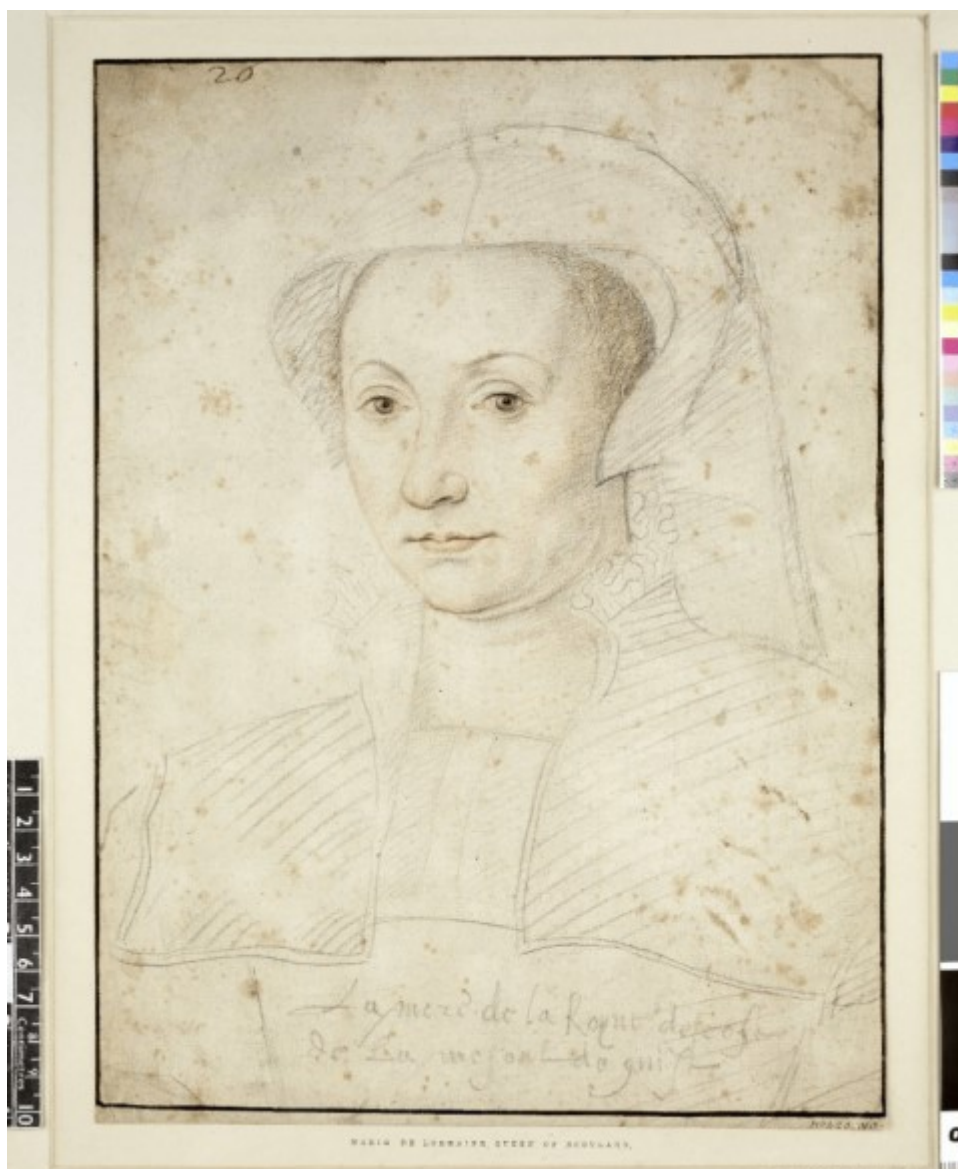 20
La mere de la Royne descosse
de La meson de guise
MARIE DE LORRAINE, QUEEN OF SCOTLAND.
1 2 3 4 5 6 7 8 9 10
Centimetres